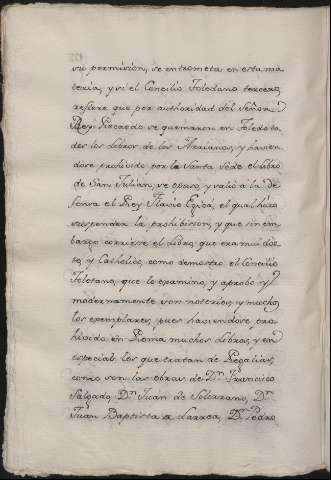 su permision, se entrometa en esta ma
teria, y si el Concilio Toledano tercero,
refiere que por authoridad del Señor
Rey Recaredo se quemaron en Toledo to
dos los libros de los Arrianos, y havien
dose prohivido por la Santa Sede el libro
de San Julian, se opuso, y salió a la de
fensa el Rey Flavio Egica, el qual hizo
suspender la prohibision, y que sin em
bargo corriese el libro, que era mui doc
to, y Catholico, como demostro el Concilio
Toletano, que lo examino, y aprobo y
modernamente son notorios, y muchos
los exemplares, pues haviendose pro
hivido en Roma muchos libros, y en
especial los que tratan de Regalias,
como son las obras de Dn. Francisco
Salgado, Dn. Juan de Solorzano, Dn.
Juan Baptista de Larrea, Dn. Pedro